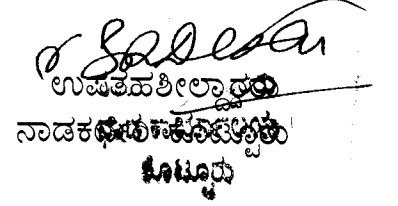 ಉಪತಹಶೀಲ್ದಾರರು
ನಾಡಕಛೇರಿ ಕೊಟ್ಟೂರು
ಕೊಟ್ಟೂರು